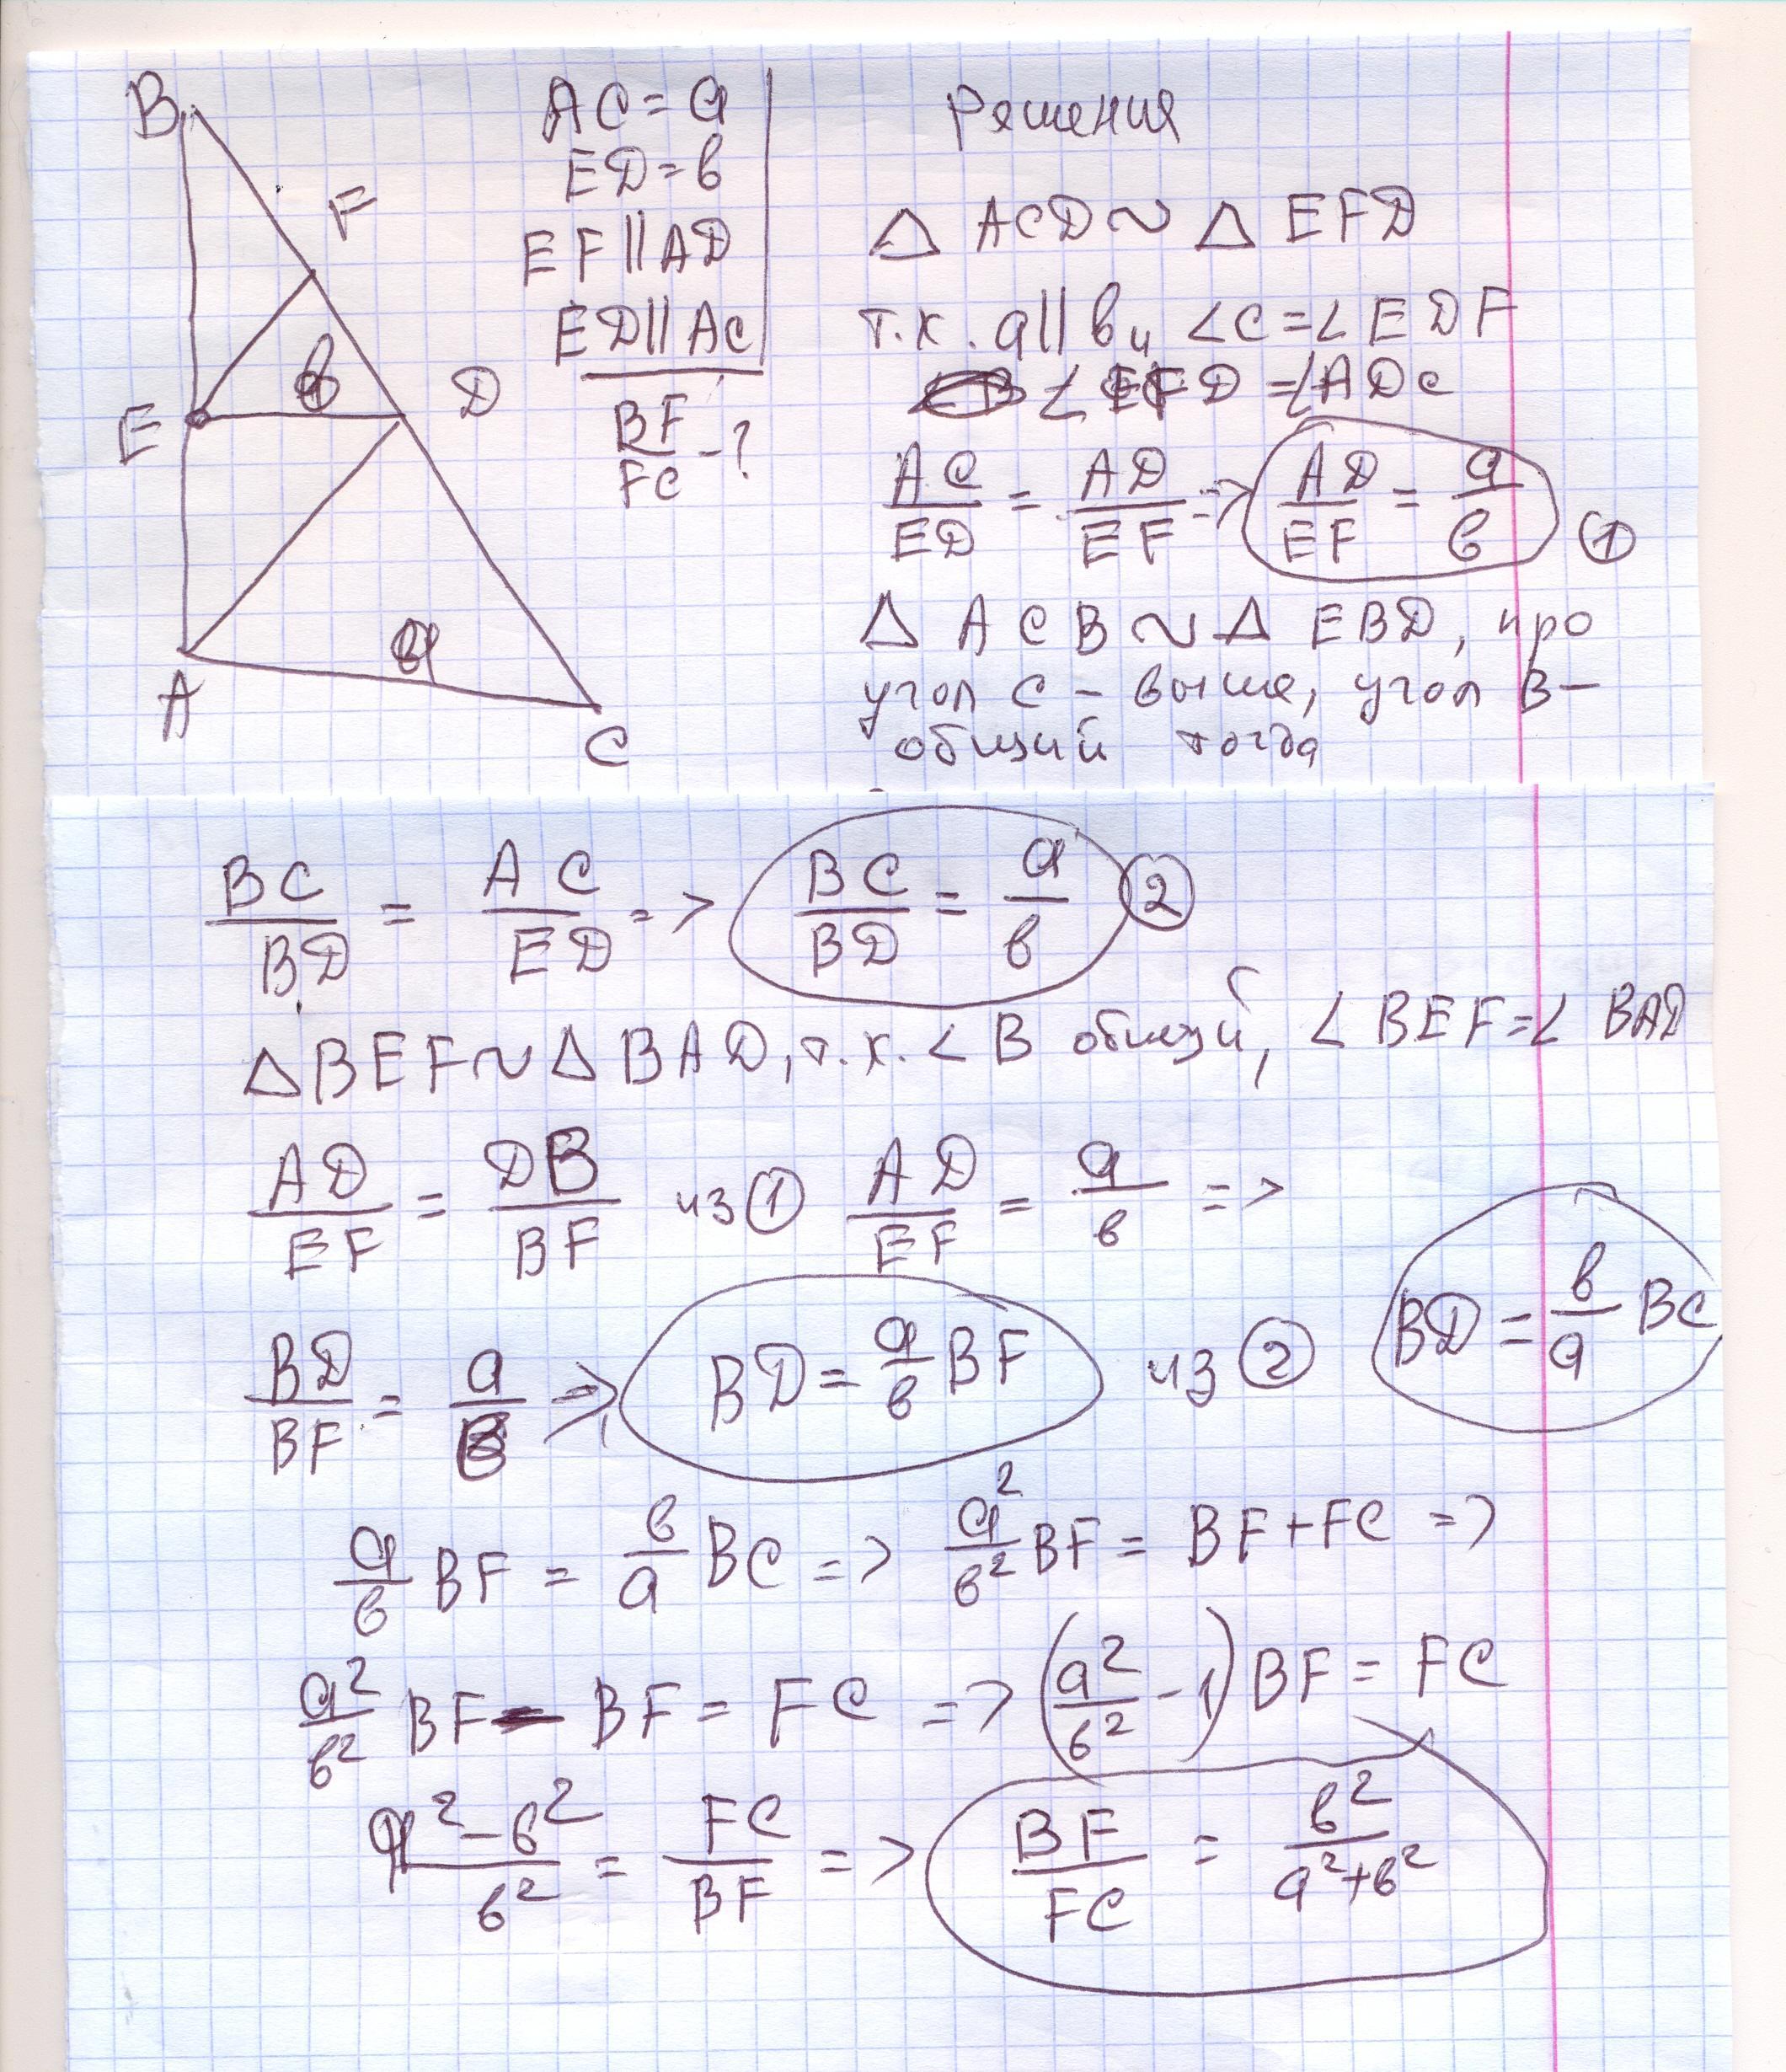 B
F
b
E
D
a
A
C
AC = a
ED = b
EF || AD
ED || AC
BF/FC - ?
Решения
△ ACD ~ △ EFD
т.к. a || b и ∠C = ∠EDF
∠EFD = ∠ADC
AC/ED = AD/EF => AD/EF = a/b ①
△ ACB ~ △ EBD, про
угол C - выше, угол B -
общий тогда
BC/BD = AC/ED => BC/BD = a/b ②
△BEF ~ △BAD, т.к. ∠B общий, ∠BEF = ∠BAD
AD/EF = DB/BF из ① AD/EF = a/b =>
BD/BF = a/b => BD = a/b BF из ② BD = b/a BC
a/b BF = b/a BC => a²/b² BF = BF + FC =>
a²/b² BF - BF = FC => (a²/b² - 1) BF = FC
a² - b²/b² = FC/BF => BF/FC = b²/a² + b²